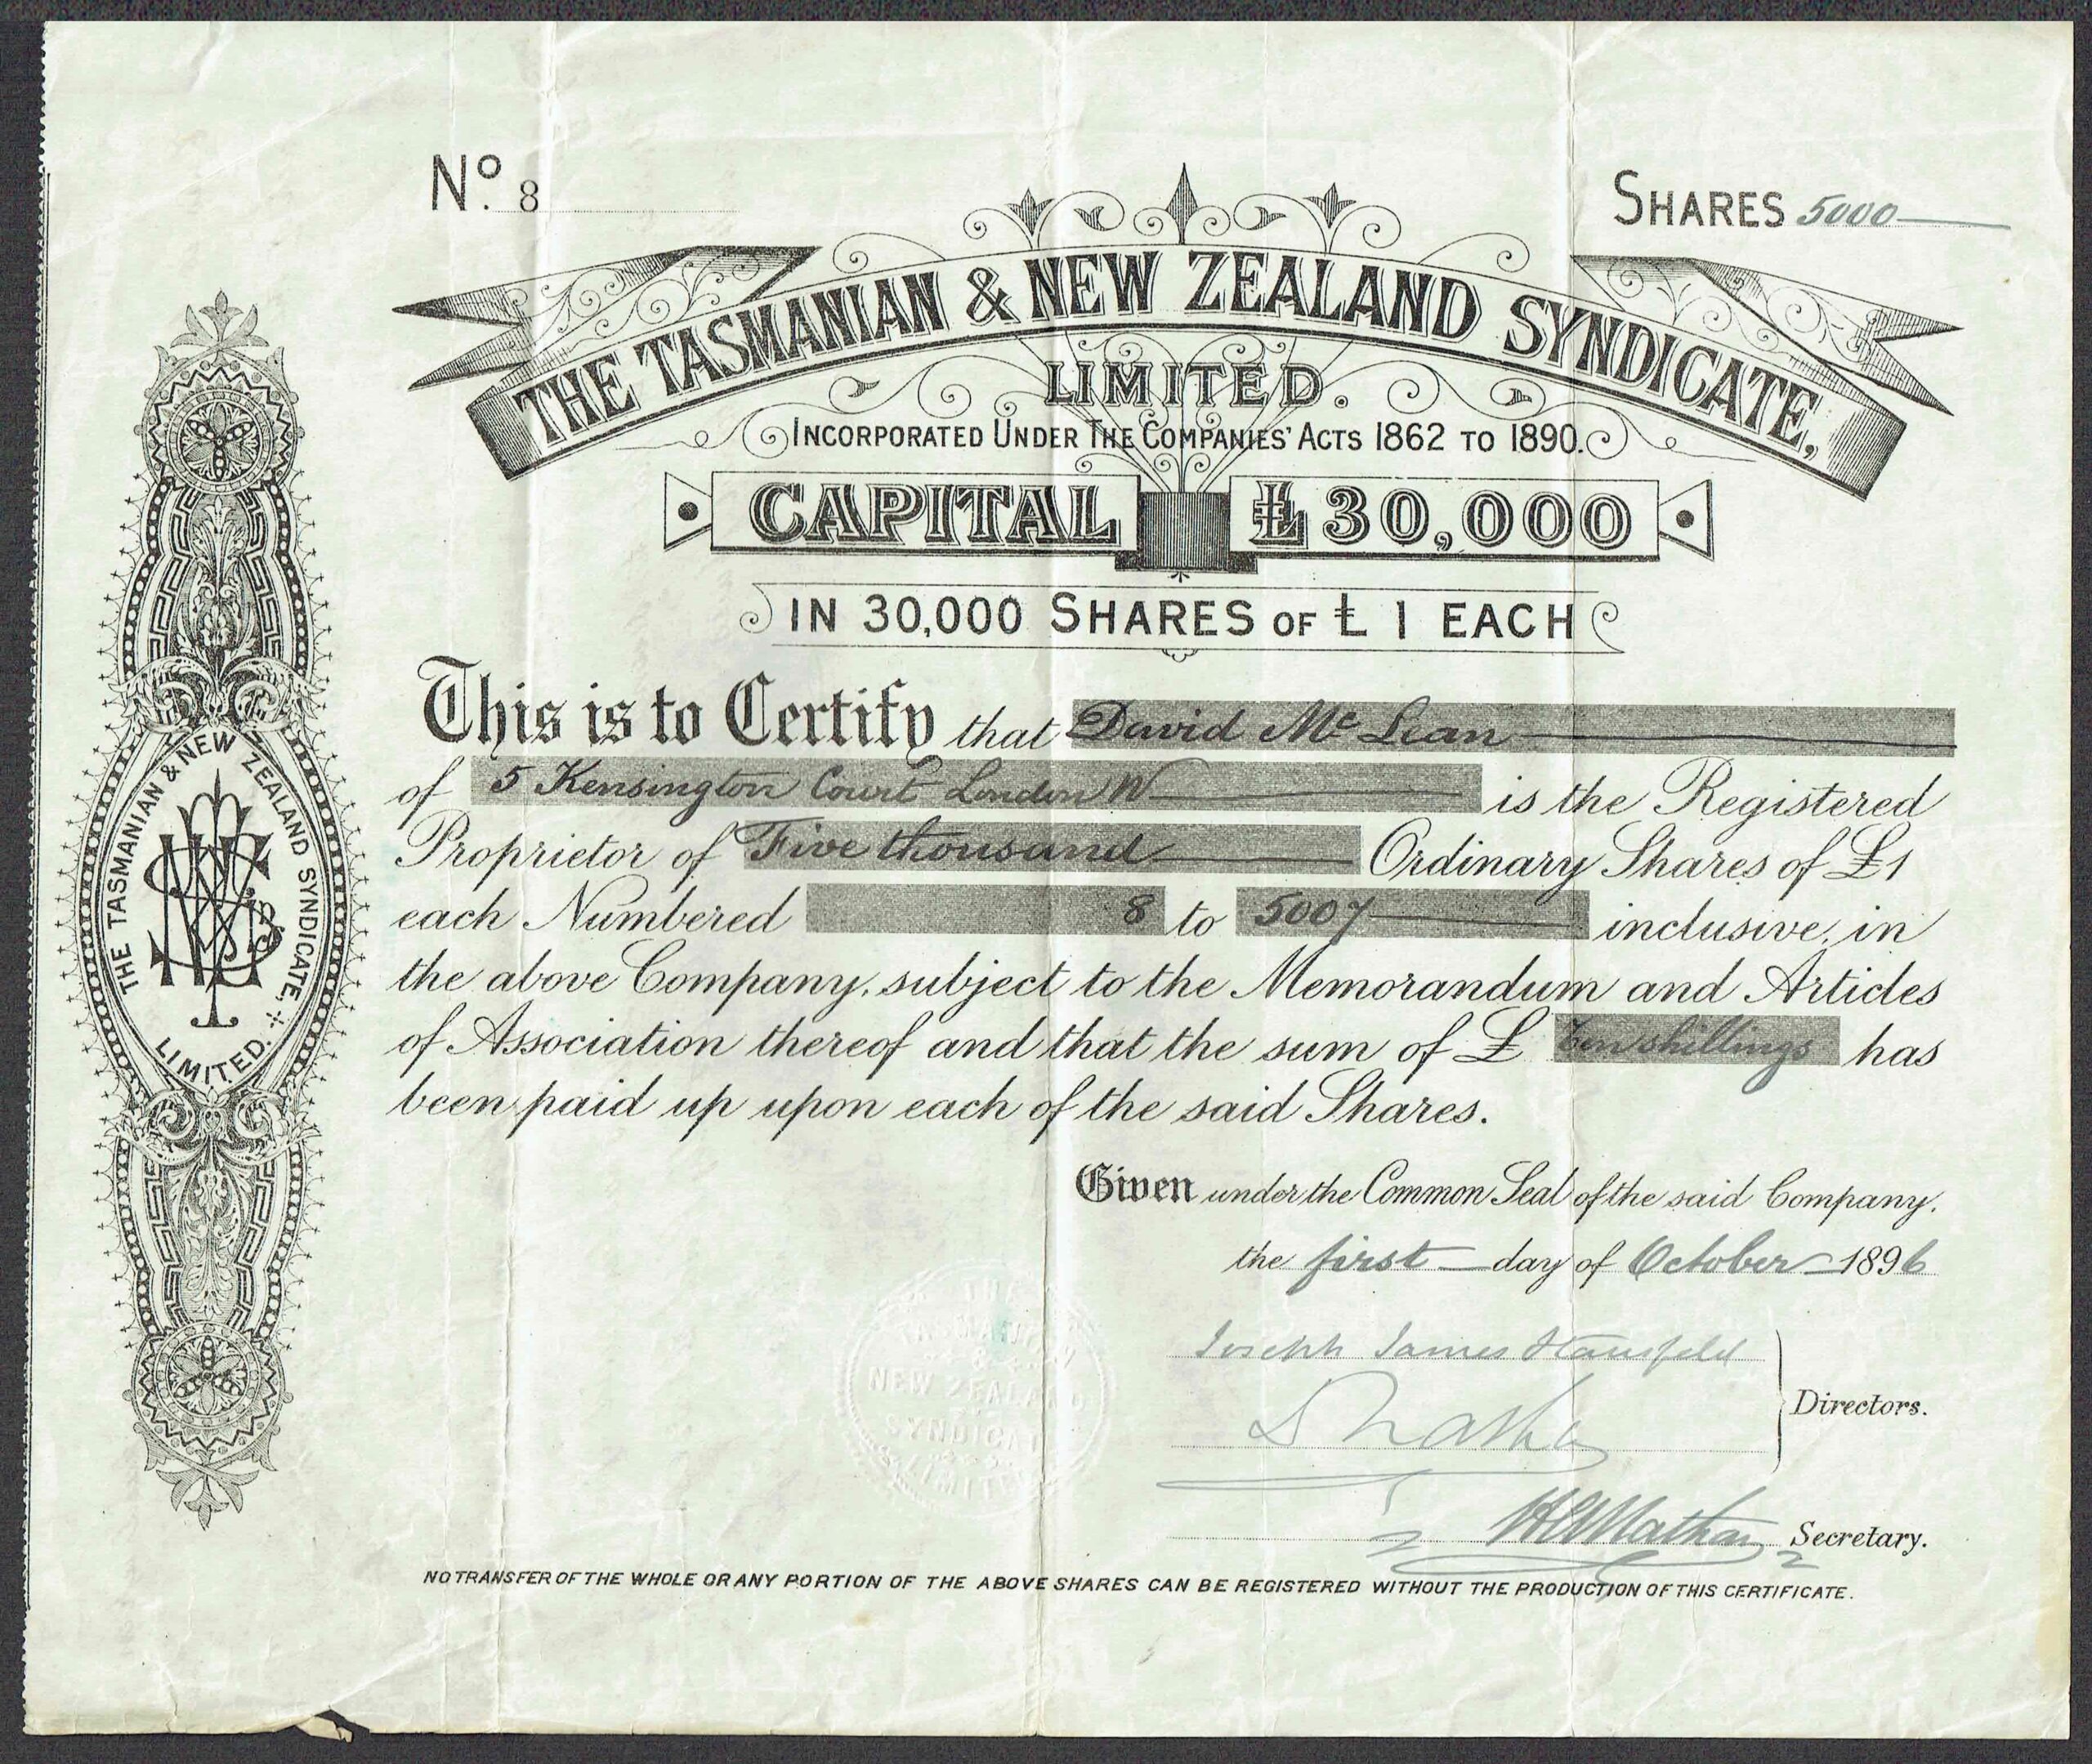 Nº. 8
SHARES 5000
THE TASMANIAN & NEW ZEALAND SYNDICATE,
LIMITED.
INCORPORATED UNDER THE COMPANIES' ACTS 1862 TO 1890.
CAPITAL £30,000
IN 30,000 SHARES OF £ 1 EACH
This is to Certify that David Mc Lean
of 5 Kensington Court London W is the Registered
Proprietor of Five thousand Ordinary Shares of £1
each Numbered 8 to 5007 inclusive, in
the above Company, subject to the Memorandum and Articles
of Association thereof and that the sum of £ Ten shillings has
been paid up upon each of the said Shares.
Given under the Common Seal of the said Company,
the first day of October 1896
Joseph James
Directors.
Secretary.
NO TRANSFER OF THE WHOLE OR ANY PORTION OF THE ABOVE SHARES CAN BE REGISTERED WITHOUT THE PRODUCTION OF THIS CERTIFICATE.
THE TASMANIAN & NEW ZEALAND SYNDICATE,
LIMITED.
THE
NEW ZEALAND